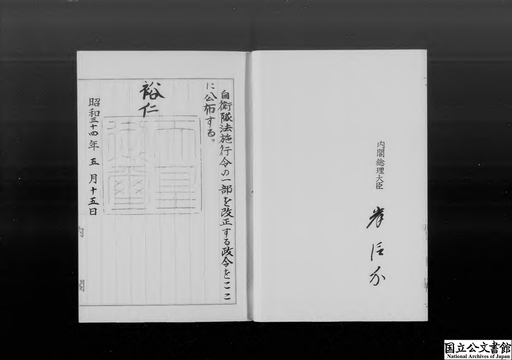 自衛隊法施行令の一部を改正する政令をここ
に公布する。
裕仁
天皇
御璽
昭和三十四年五月十五日
内閣総理大臣
岸信介
国立公文書館
National Archives of Japan